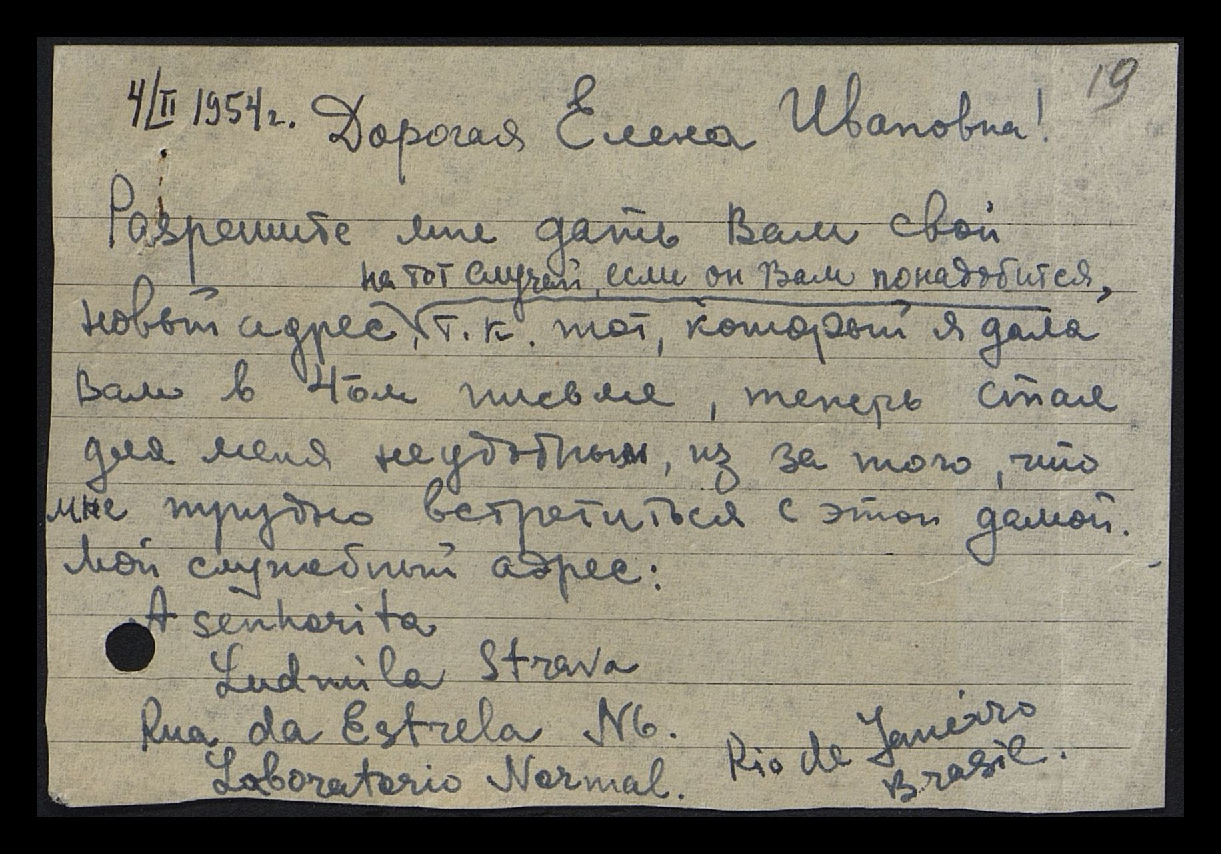 19
4/II 1954г. Дорогая Елена Ивановна!
Разрешите мне дать Вам свой
на тот случай, если он Вам понадобится,
новый адрес, т.к. тот, который я дала
Вам в 4ом письме, теперь стал
для меня неудобным, из за того, что
мне трудно встретиться с этой дамой.
Мой служебный адрес:
A senhorita
Ludmila Strava
Rua da Estrela N6.
Laboratorio Normal.
Rio de Janeiro
Brasil.